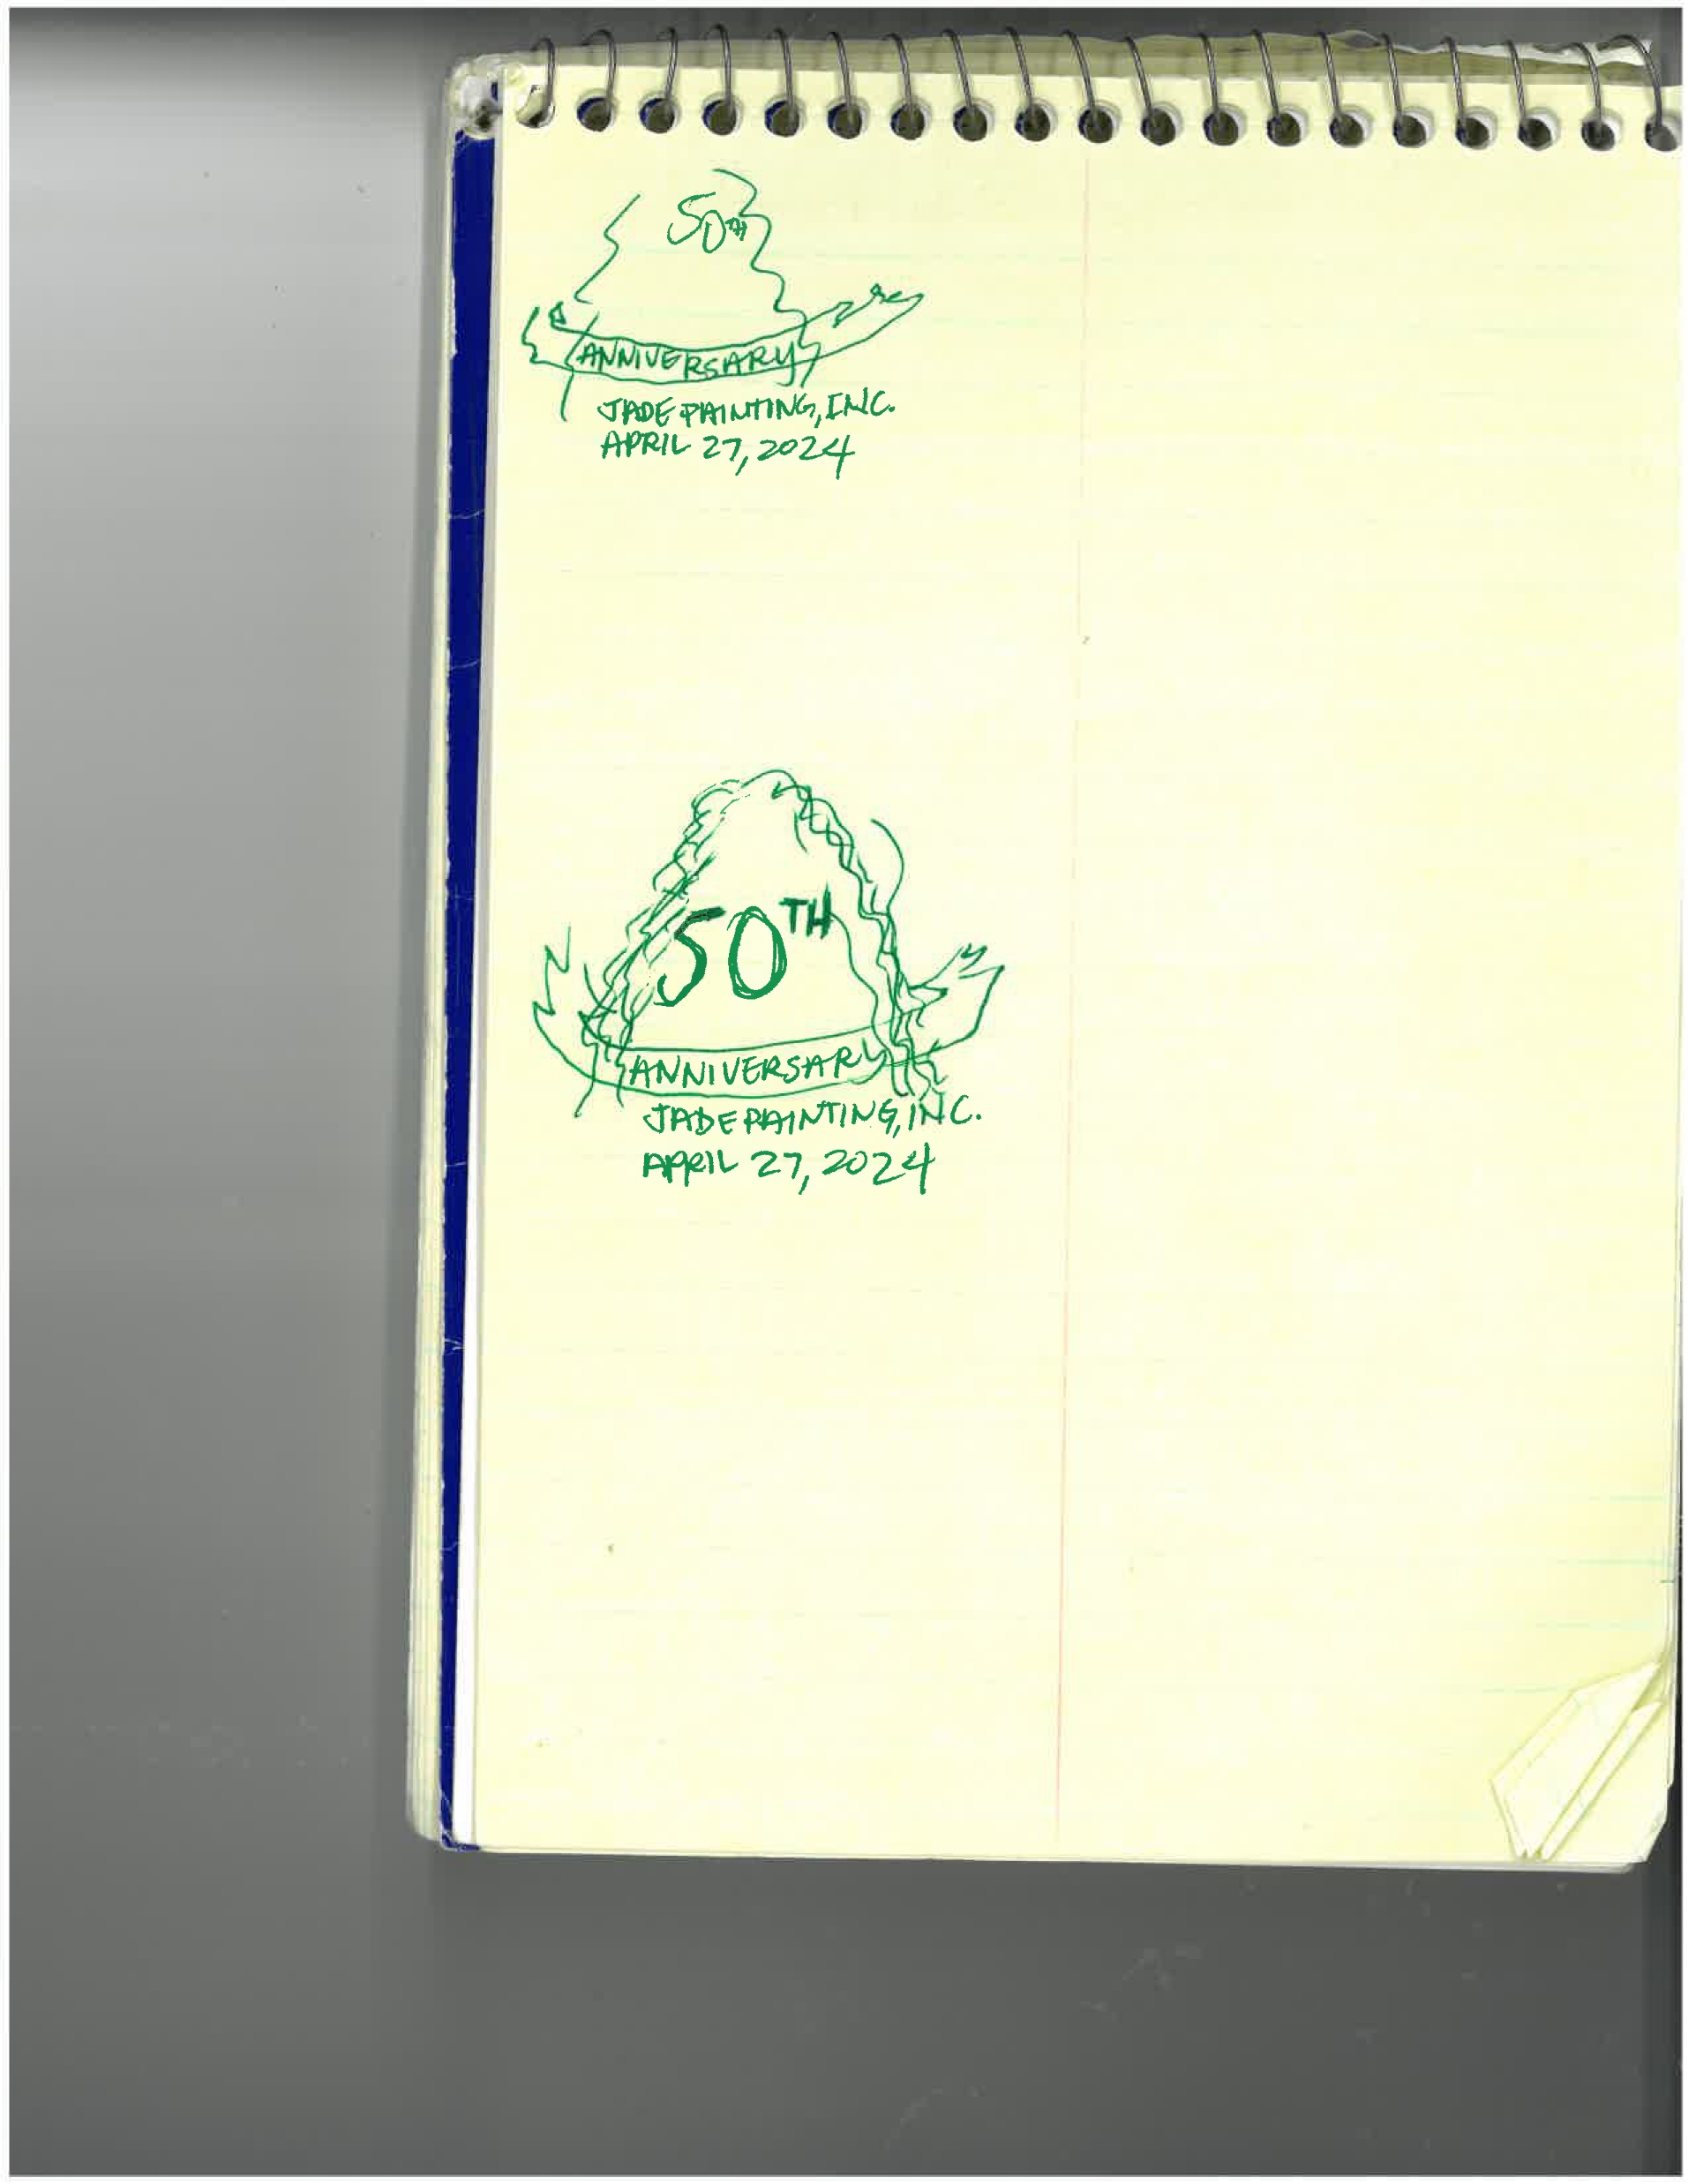 50TH
ANNIVERSARY
JADE PAINTING, INC.
APRIL 27, 2024
50TH
ANNIVERSARY
JADE PAINTING, INC.
APRIL 27, 2024